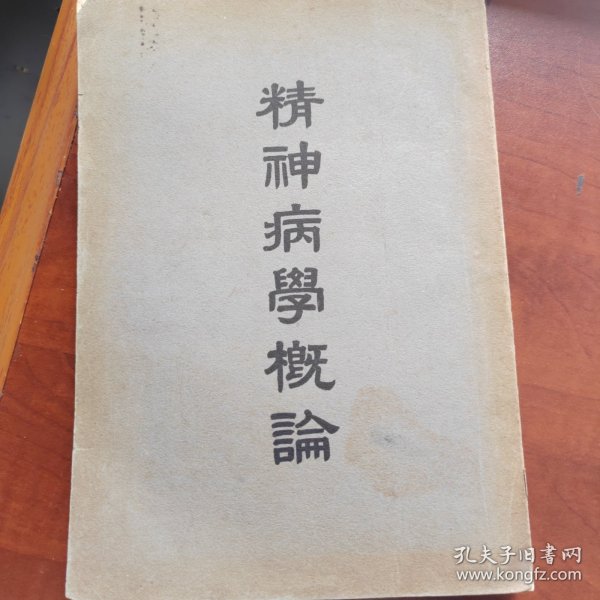 精神病學概論
孔夫子旧书网
www.kongfz.com